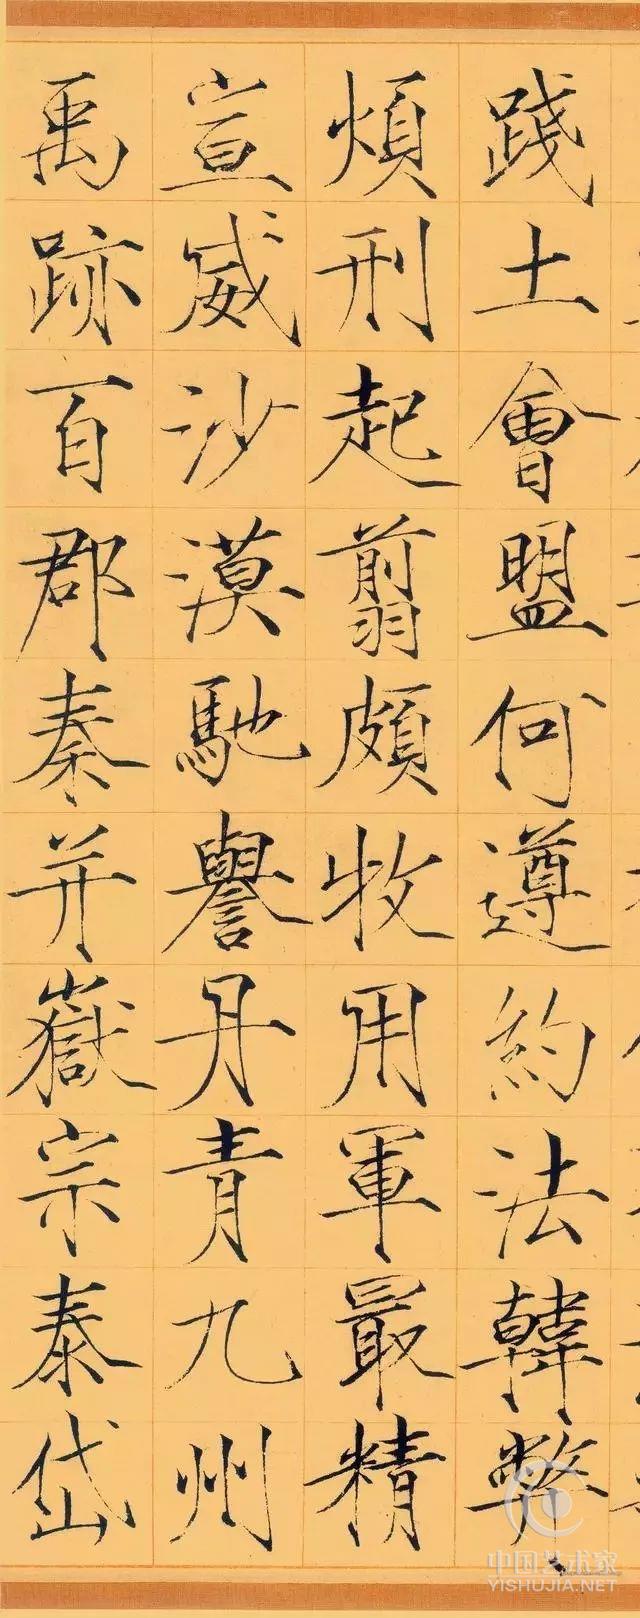 踐土會盟何遵約法韓弊
煩刑起翦頗牧用軍最精
宣威沙漠馳譽丹青九州
禹跡百郡秦并嶽宗泰岱
中国艺术家
YISHUJIA.NET